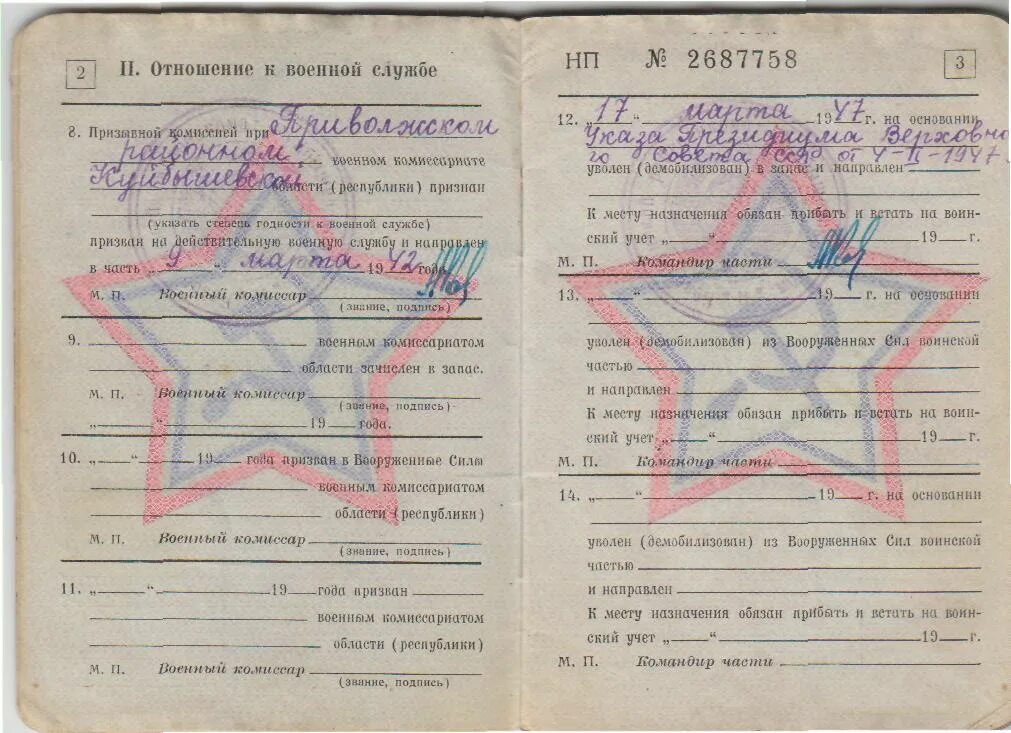 2
II. Отношение к военной службе
8. Призывной комиссией при Приволжском
районном военном комиссариате
Куйбышевской области (республики) признан
(указать степень годности к военной службе)
призван на действительную военную службу и направлен
в часть „9“ марта 1942 года
М. П. Военный комиссар
(звание, подпись)
9. военным комиссариатом
области зачислен в запас.
М. П. Военный комиссар
(звание, подпись)
„ “ 19 года.
10. „ “ 19 года призван в Вооруженные Силы
военным комиссариатом
области (республики)
М. П. Военный комиссар
(звание, подпись)
11. „ “ 19 года призван
военным комиссариатом
области (республики)
М. П. Военный комиссар
(звание, подпись)
НП № 2687758
3
12. „17“ марта 1947 г. на основании
Указа Президиума Верховно
го Совета ССР от 4-II-1947
уволен (демобилизован) в запас и направлен
К месту назначения обязан прибыть и встать на воин-
ский учет „ “ 19 г.
М. П. Командир части
13. „ “ 19 г. на основании
уволен (демобилизован) из Вооруженных Сил воинской
частью
и направлен
К месту назначения обязан прибыть и встать на воин-
ский учет „ “ 19 г.
М. П. Командир части
14. „ “ 19 г. на основании
уволен (демобилизован) из Вооруженных Сил воинской
частью
и направлен
К месту назначения обязан прибыть и встать на воин-
ский учет „ “ 19 г.
М. П. Командир части